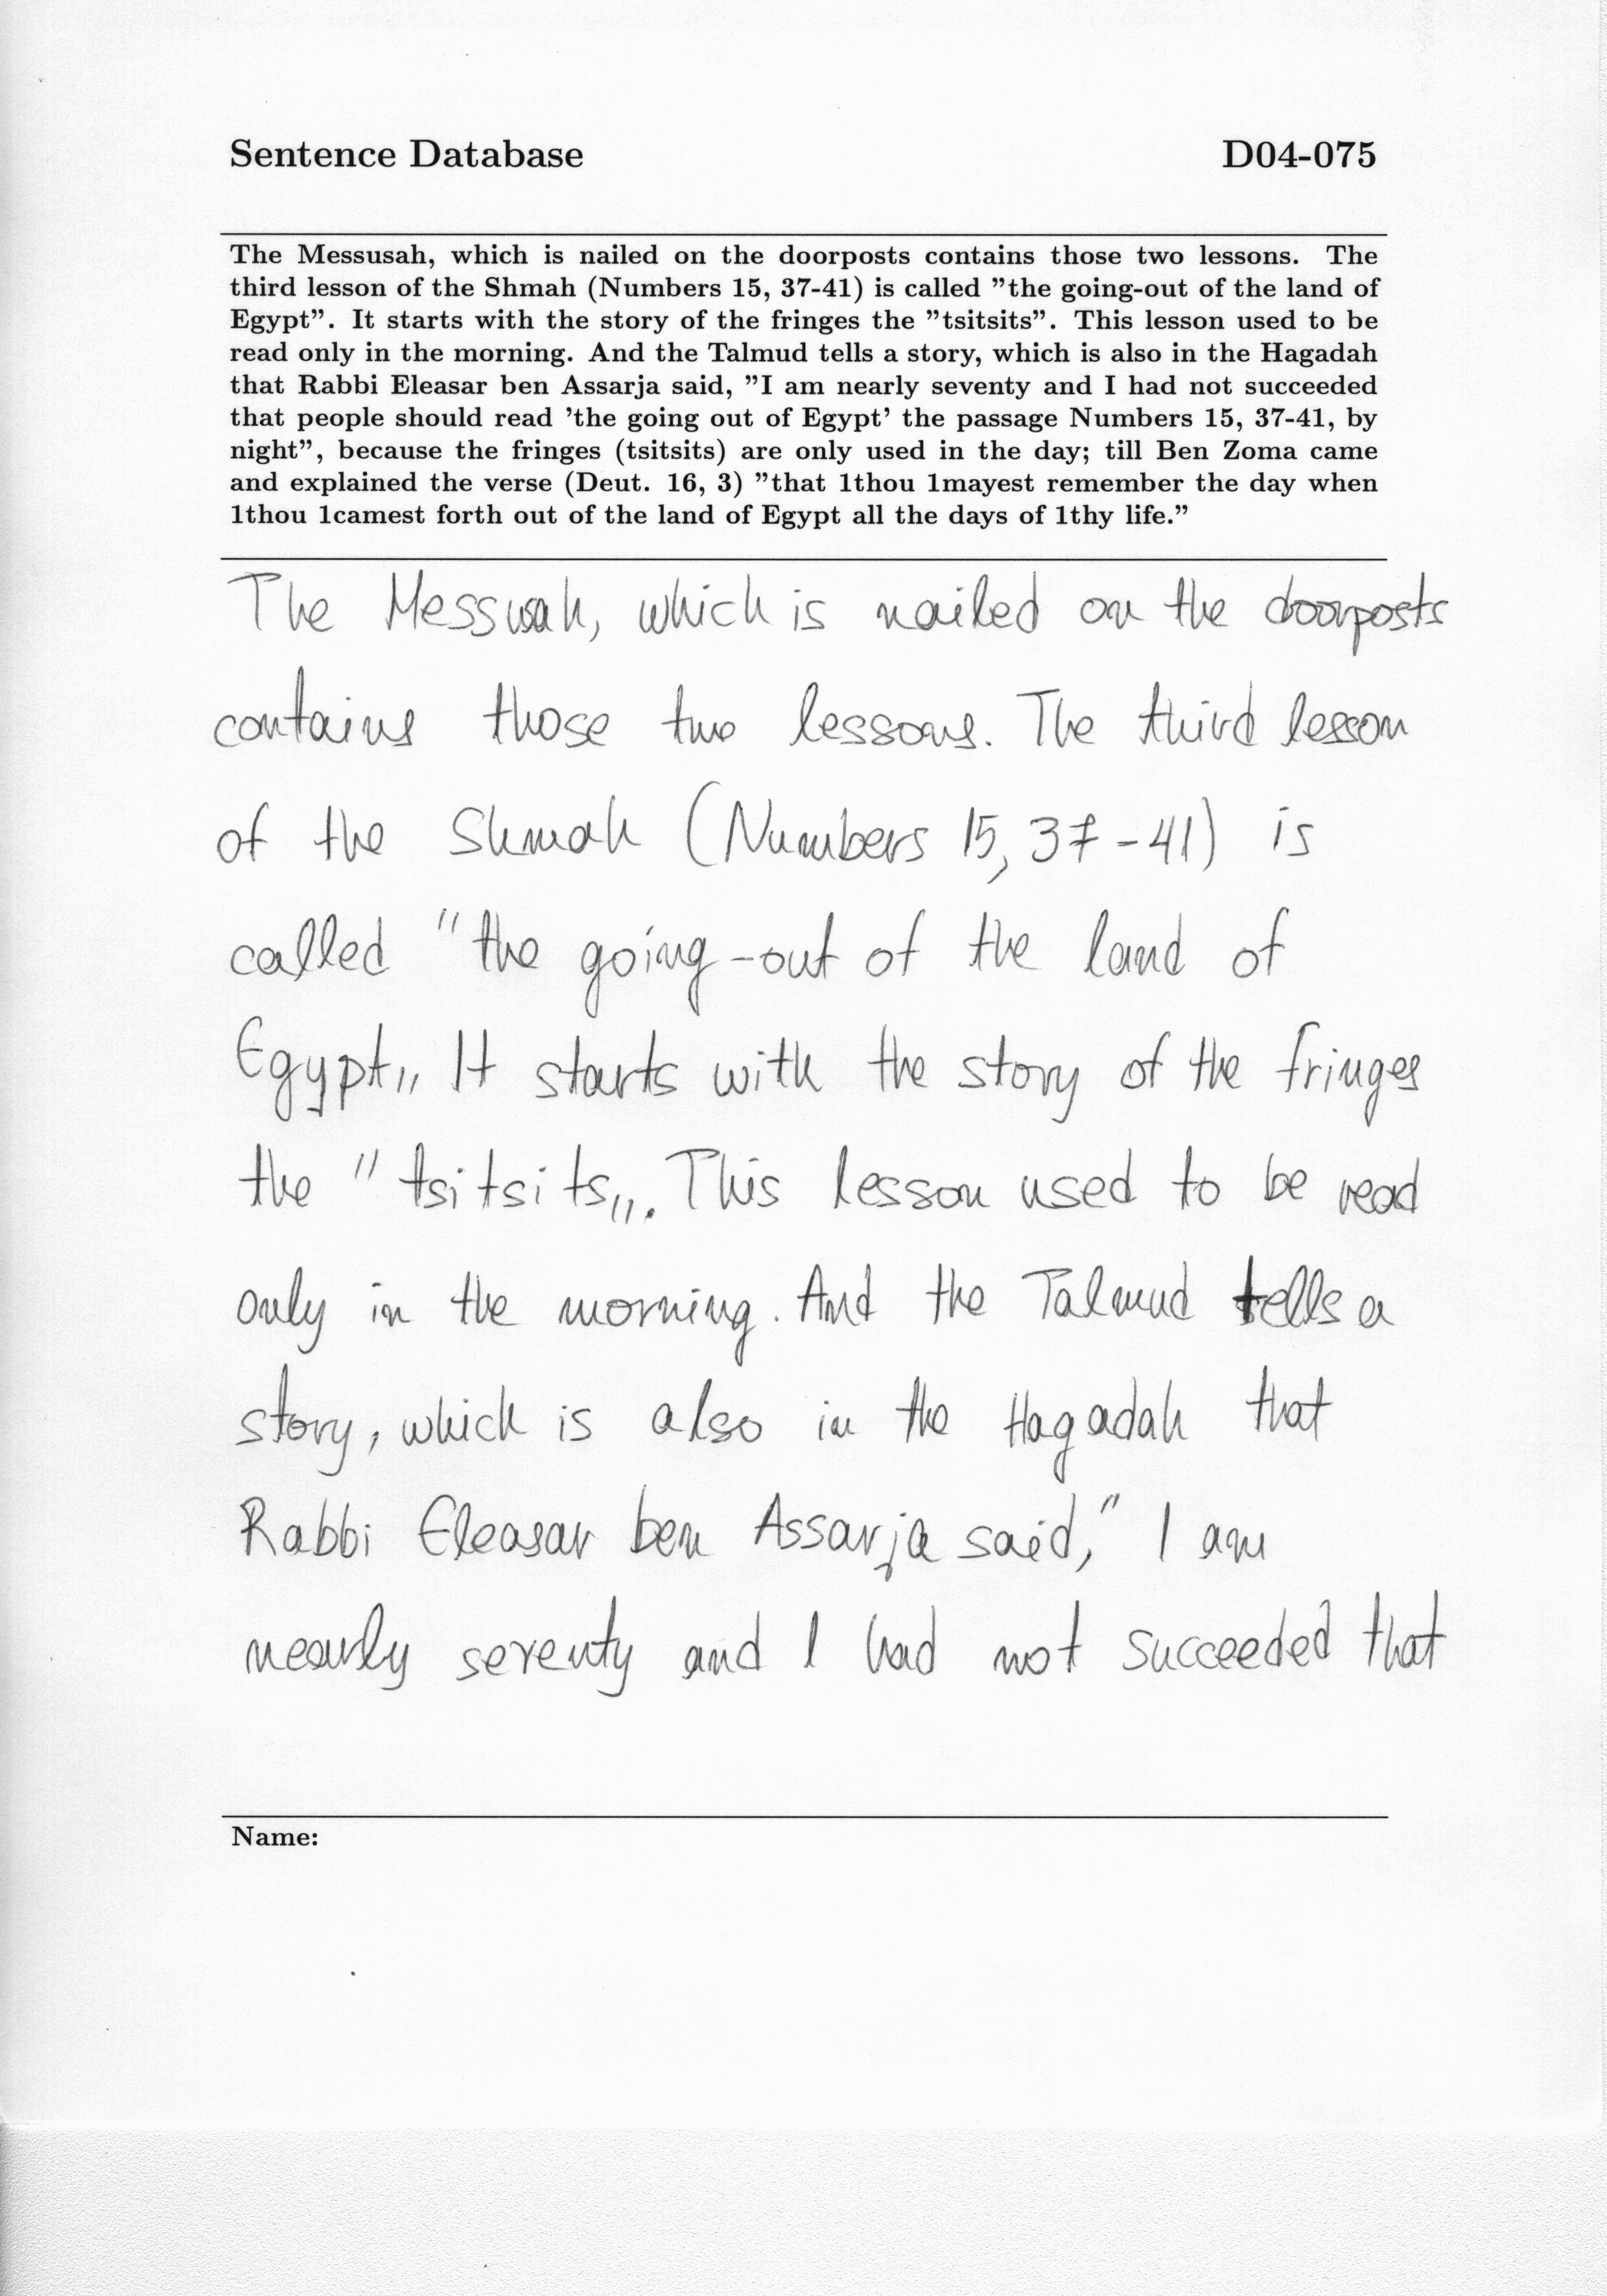 Sentence Database D04-075
The Messusah, which is nailed on the doorposts contains those two lessons. The
third lesson of the Shmah (Numbers 15, 37-41) is called ”the going-out of the land of
Egypt”. It starts with the story of the fringes the ”tsitsits”. This lesson used to be
read only in the morning. And the Talmud tells a story, which is also in the Hagadah
that Rabbi Eleasar ben Assarja said, ”I am nearly seventy and I had not succeeded
that people should read ’the going out of Egypt’ the passage Numbers 15, 37-41, by
night”, because the fringes (tsitsits) are only used in the day; till Ben Zoma came
and explained the verse (Deut. 16, 3) ”that 1thou 1mayest remember the day when
1thou 1camest forth out of the land of Egypt all the days of 1thy life.”
The Messusah, which is nailed on the doorposts
contains those two lessons. The third lesson
of the Shmah (Numbers 15, 37-41) is
called "the going-out of the land of
Egypt„ It starts with the story of the fringes
the "tsitsits„. This lesson used to be read
only in the morning. And the Talmud tells a
story, which is also in the Hagadah that
Rabbi Eleasar ben Assarja said," I am
nearly seventy and I had not succeeded that
Name: